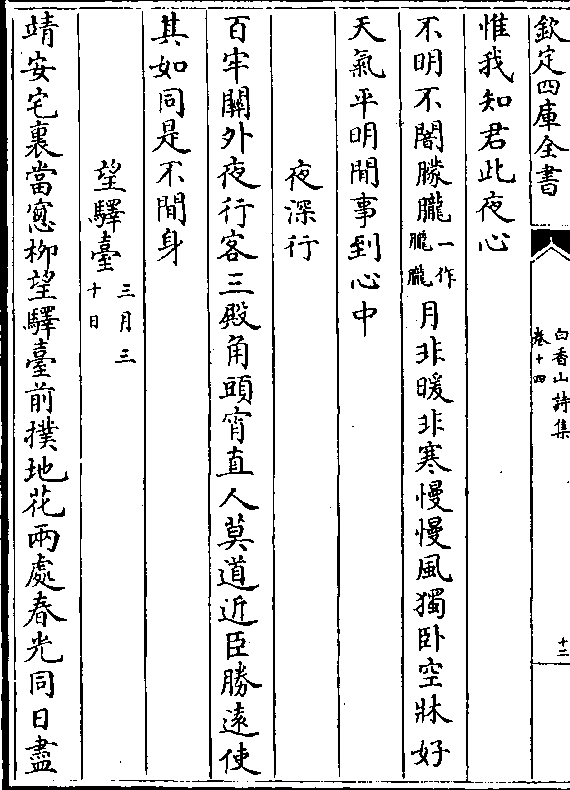 欽定四庫全書
白香山詩集
卷十四
十二
惟我知君此夜心
不明不闇朦朧一作朧朧月非暖非寒慢慢風獨卧空牀好
天氣平明閒事到心中
夜深行
百牢關外夜行客三殿角頭宵直人莫道近臣勝遠使
其如同是不閒身
望驛臺三月三十日
靖安宅裏當窻柳望驛臺前撲地花兩處春光同日盡